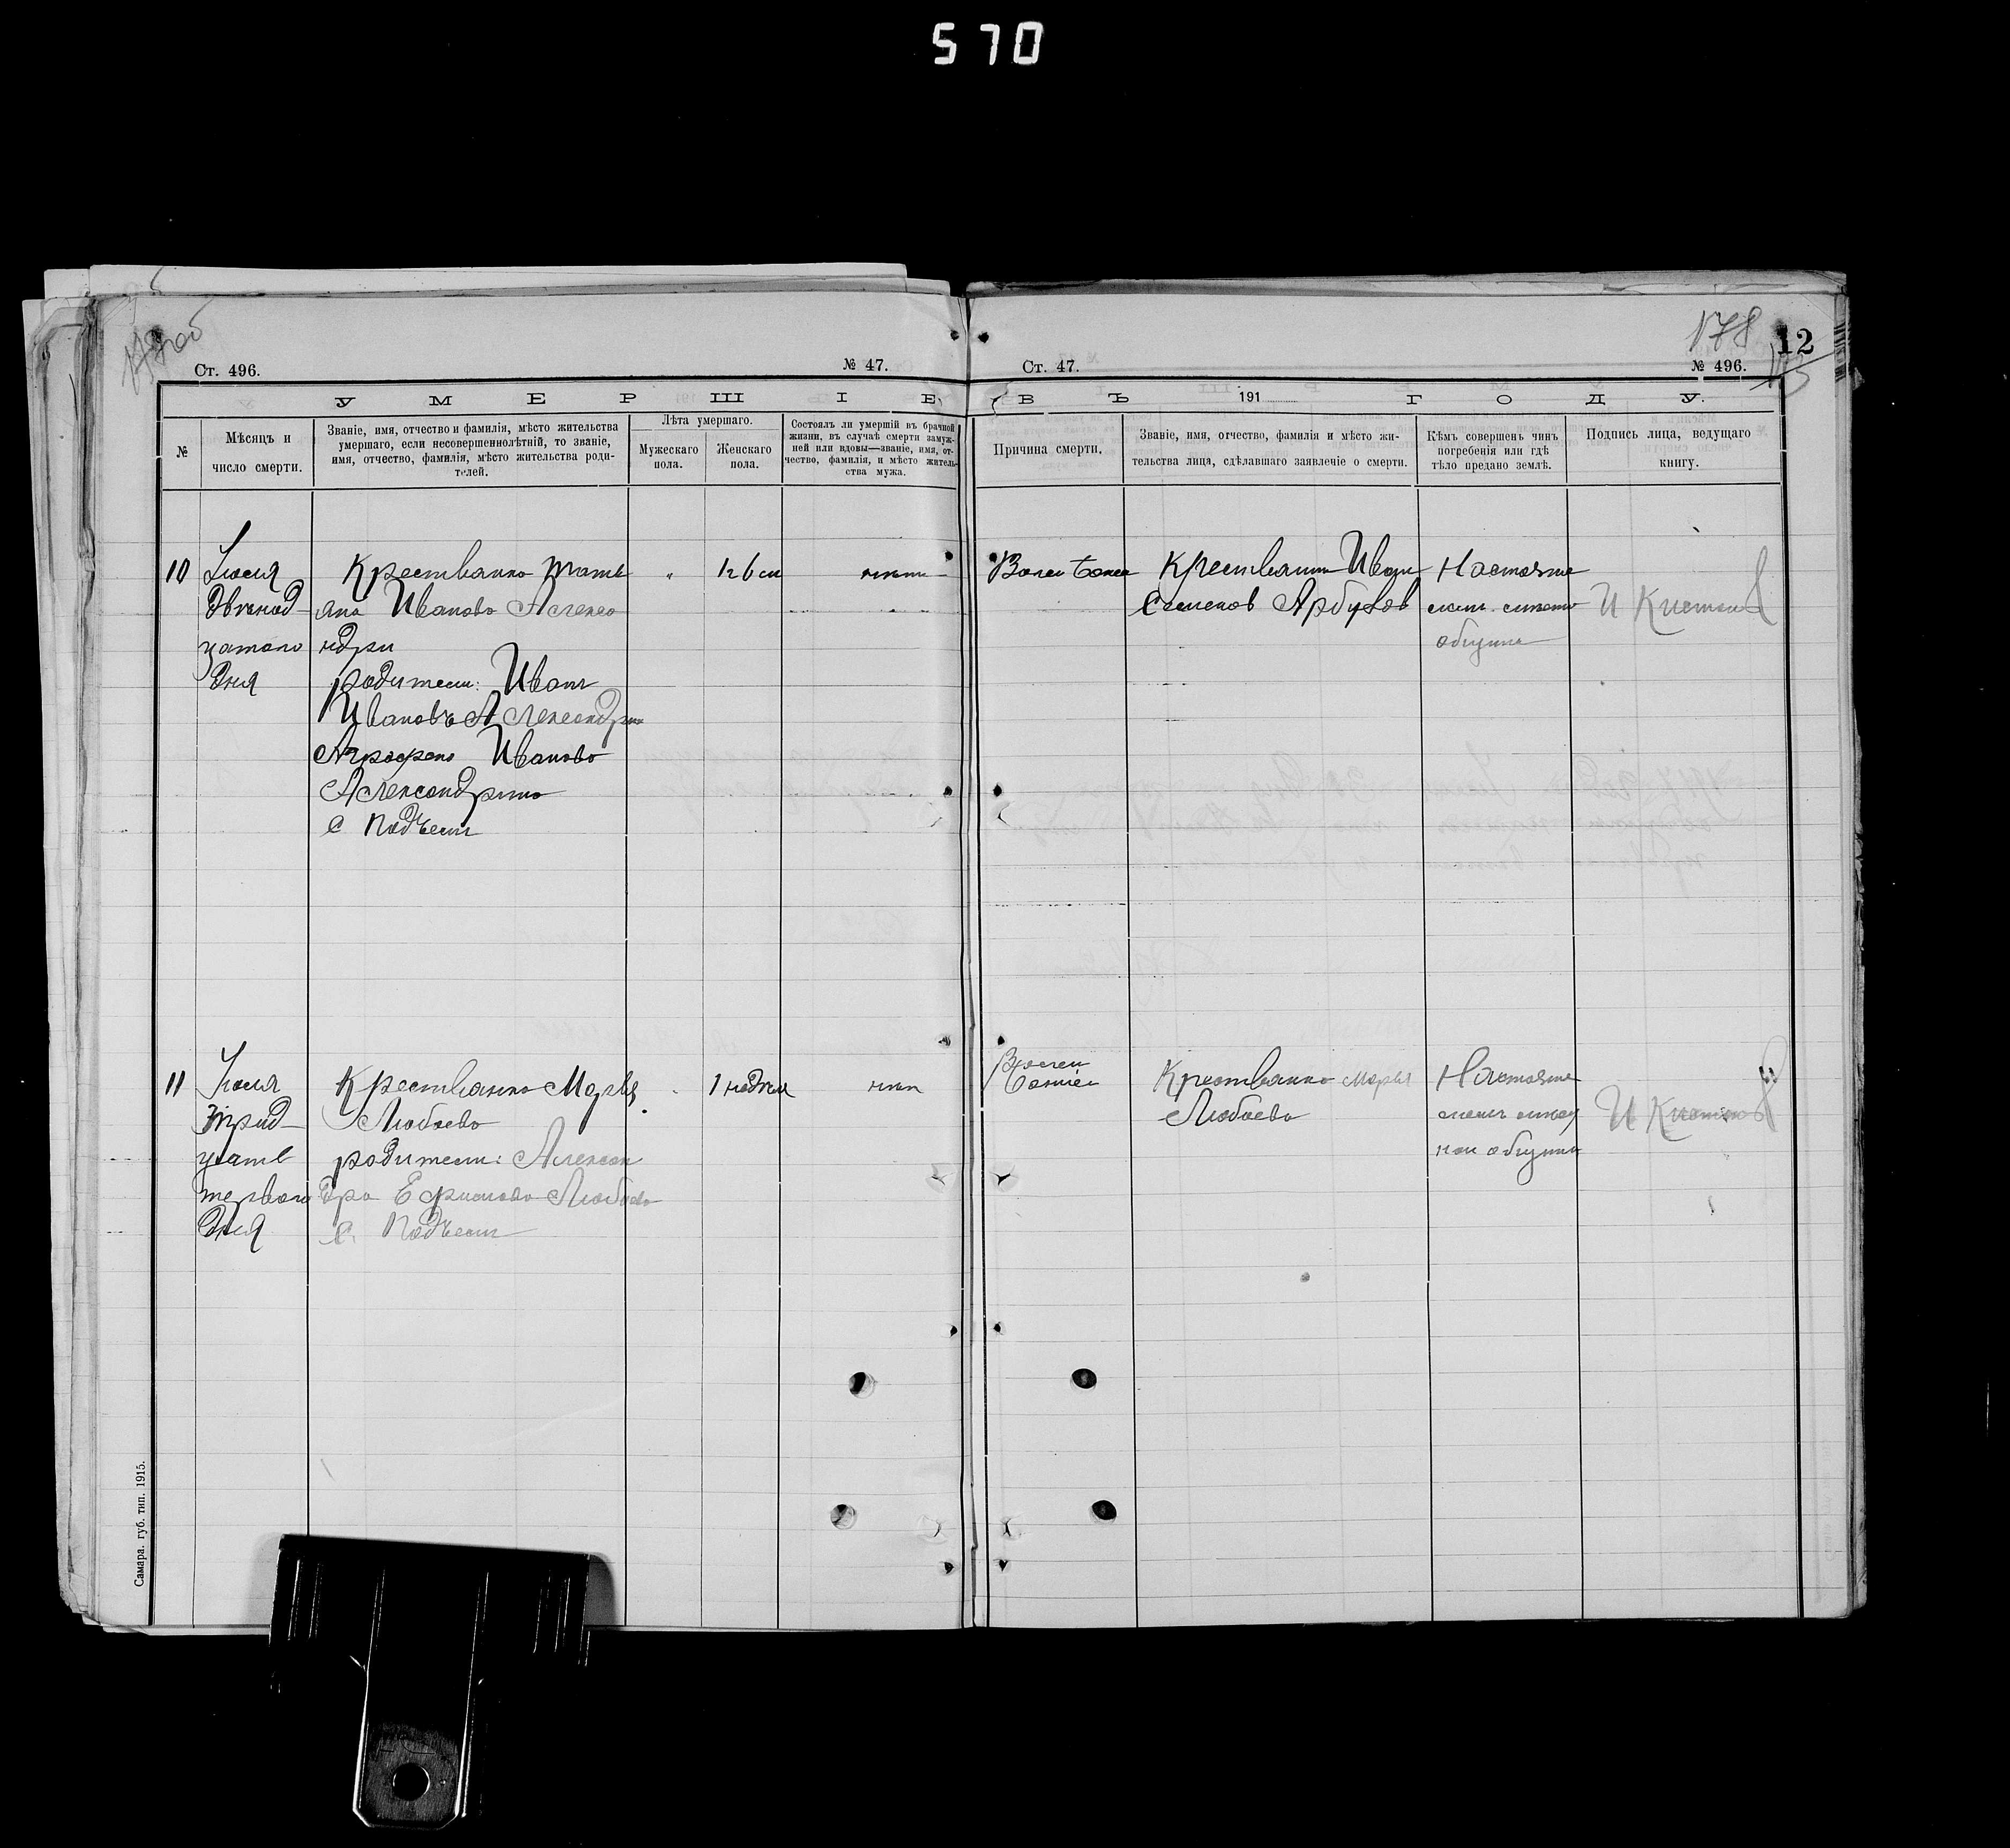 570
178
12
Ст. 496.
№ 47.
Ст. 47.
№ 496.
УМЕРШІЕ
ВЪ 191 ГОДУ.
№
Мѣсяцъ и
число смерти.
Званіе, имя, отчество и фамилія, мѣсто жительства
умершаго, если несовершеннолѣтній, то званіе,
имя, отчество, фамилія, мѣсто жительства роди-
телей.
Лѣта умершаго.
Мужескаго
пола.
Женскаго
пола.
Состоялъ ли умершій въ брачной
жизни, въ случаѣ смерти замуж-
ней или вдовы—званіе, имя, от-
чество, фамилія, и мѣсто житель-
ства мужа.
Причина смерти.
Званіе, имя, отчество, фамилія и мѣсто жи-
тельства лица, сдѣлавшаго заявленіе о смерти.
Кѣмъ совершенъ чинъ
погребенія или гдѣ
тѣло предано землѣ.
Подпись лица, ведущаго
книгу.
10
Июля
двѣнад-
цатаго
дня
Крестьянка Тать
яна Иванова Алекса
ндри
родители: Иванъ
Ивановъ Александрин
Аграфена Иванова
Александрина
с Подъем
Крестьянин Иван
Семенов Арбузов
Настояте
общины
И
11
Июля
трид-
цать
первого
дня
Крестьянка Марья
Любаева
родители: Алексан
дра Ефимова Любаева
с. Подъем
1 недѣля
Крестьянка Марья
Любаева
Настояте
ной общины
И
Самара. губ. тип. 1915.